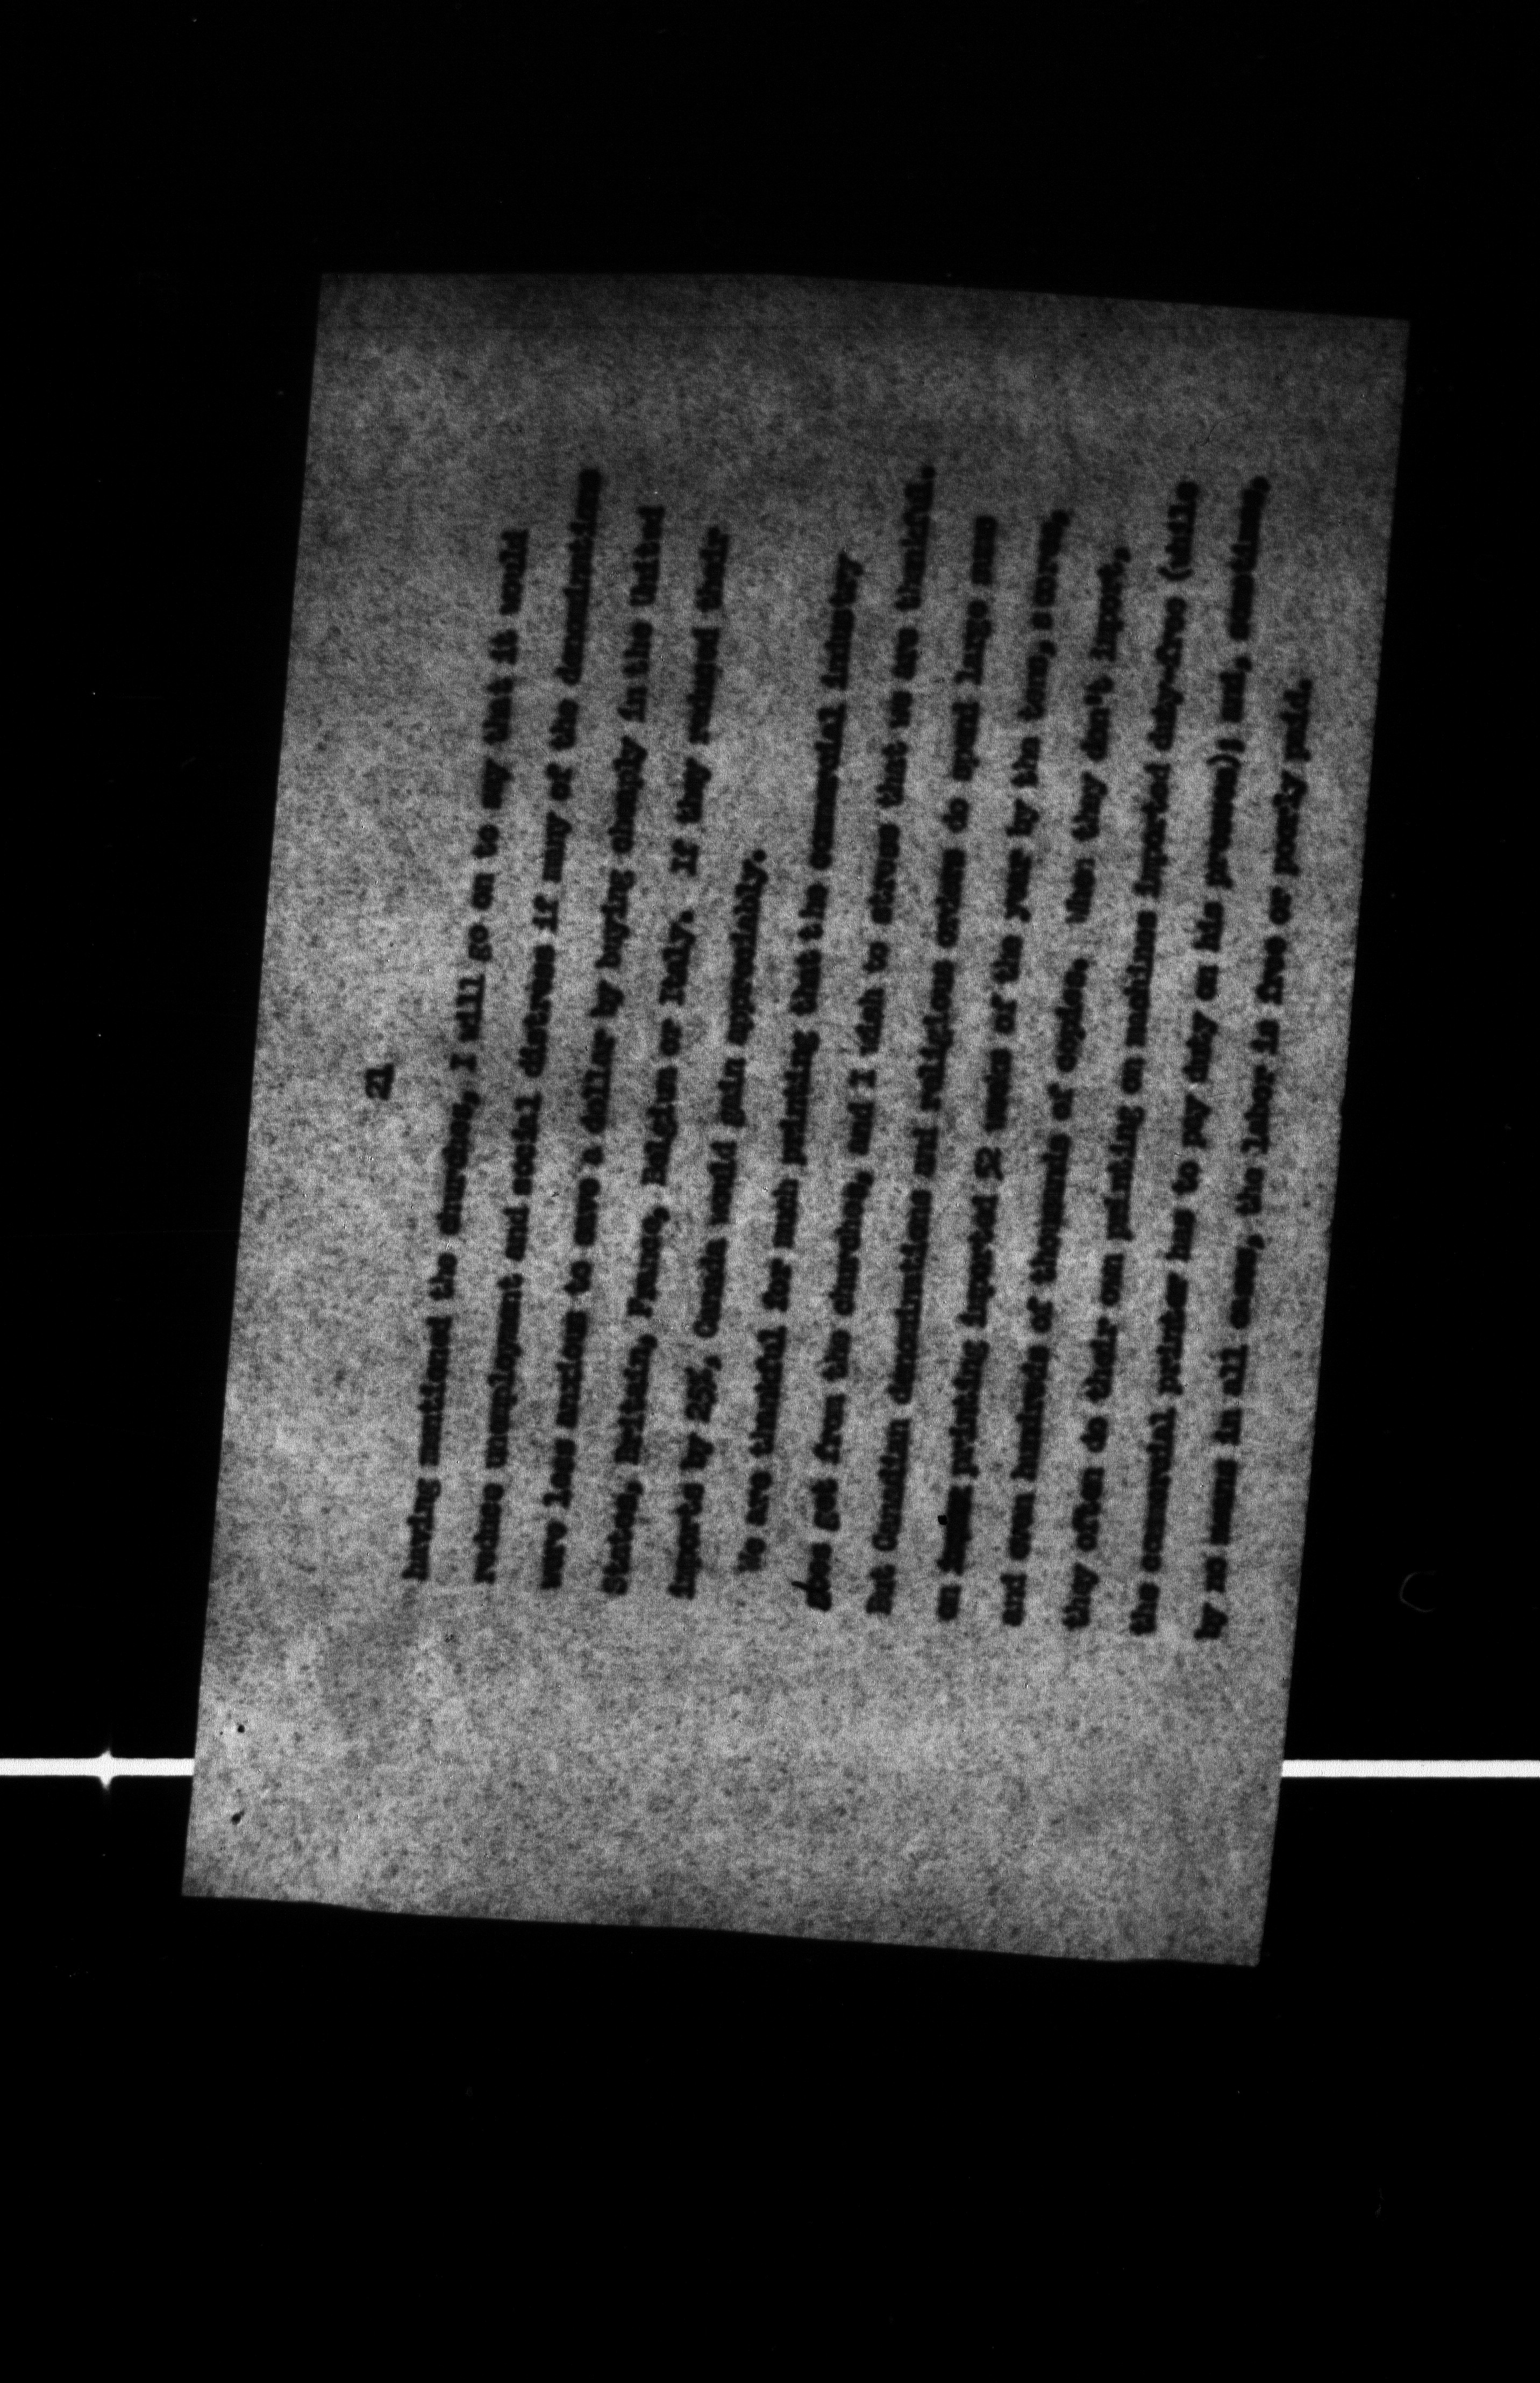 21
having mentioned the churches, I will go on to say that it would
reduce unemployment and social distress if many of the denominations
were less anxious to save a dollar by buying cheaply in the United
States, Britain, France, Belgium or Italy. If they reduced their
imports by 25%, Canada would gain appreciably.
We are thankful for much printing that the commercial industry
does get from the churches, and I wish to stress that we are thankful.
But Canadian denominations and religious orders do spend large sums
on printing imported 52 weeks of the year by the tons,
and even hundreds of thousands of copies. When they don't import,
they often do their own printing on machines imported duty-free (while
the commercial printer has to pay duty on his presses); and, sometimes,
by no means in all cases, the labor is free or poorly paid.